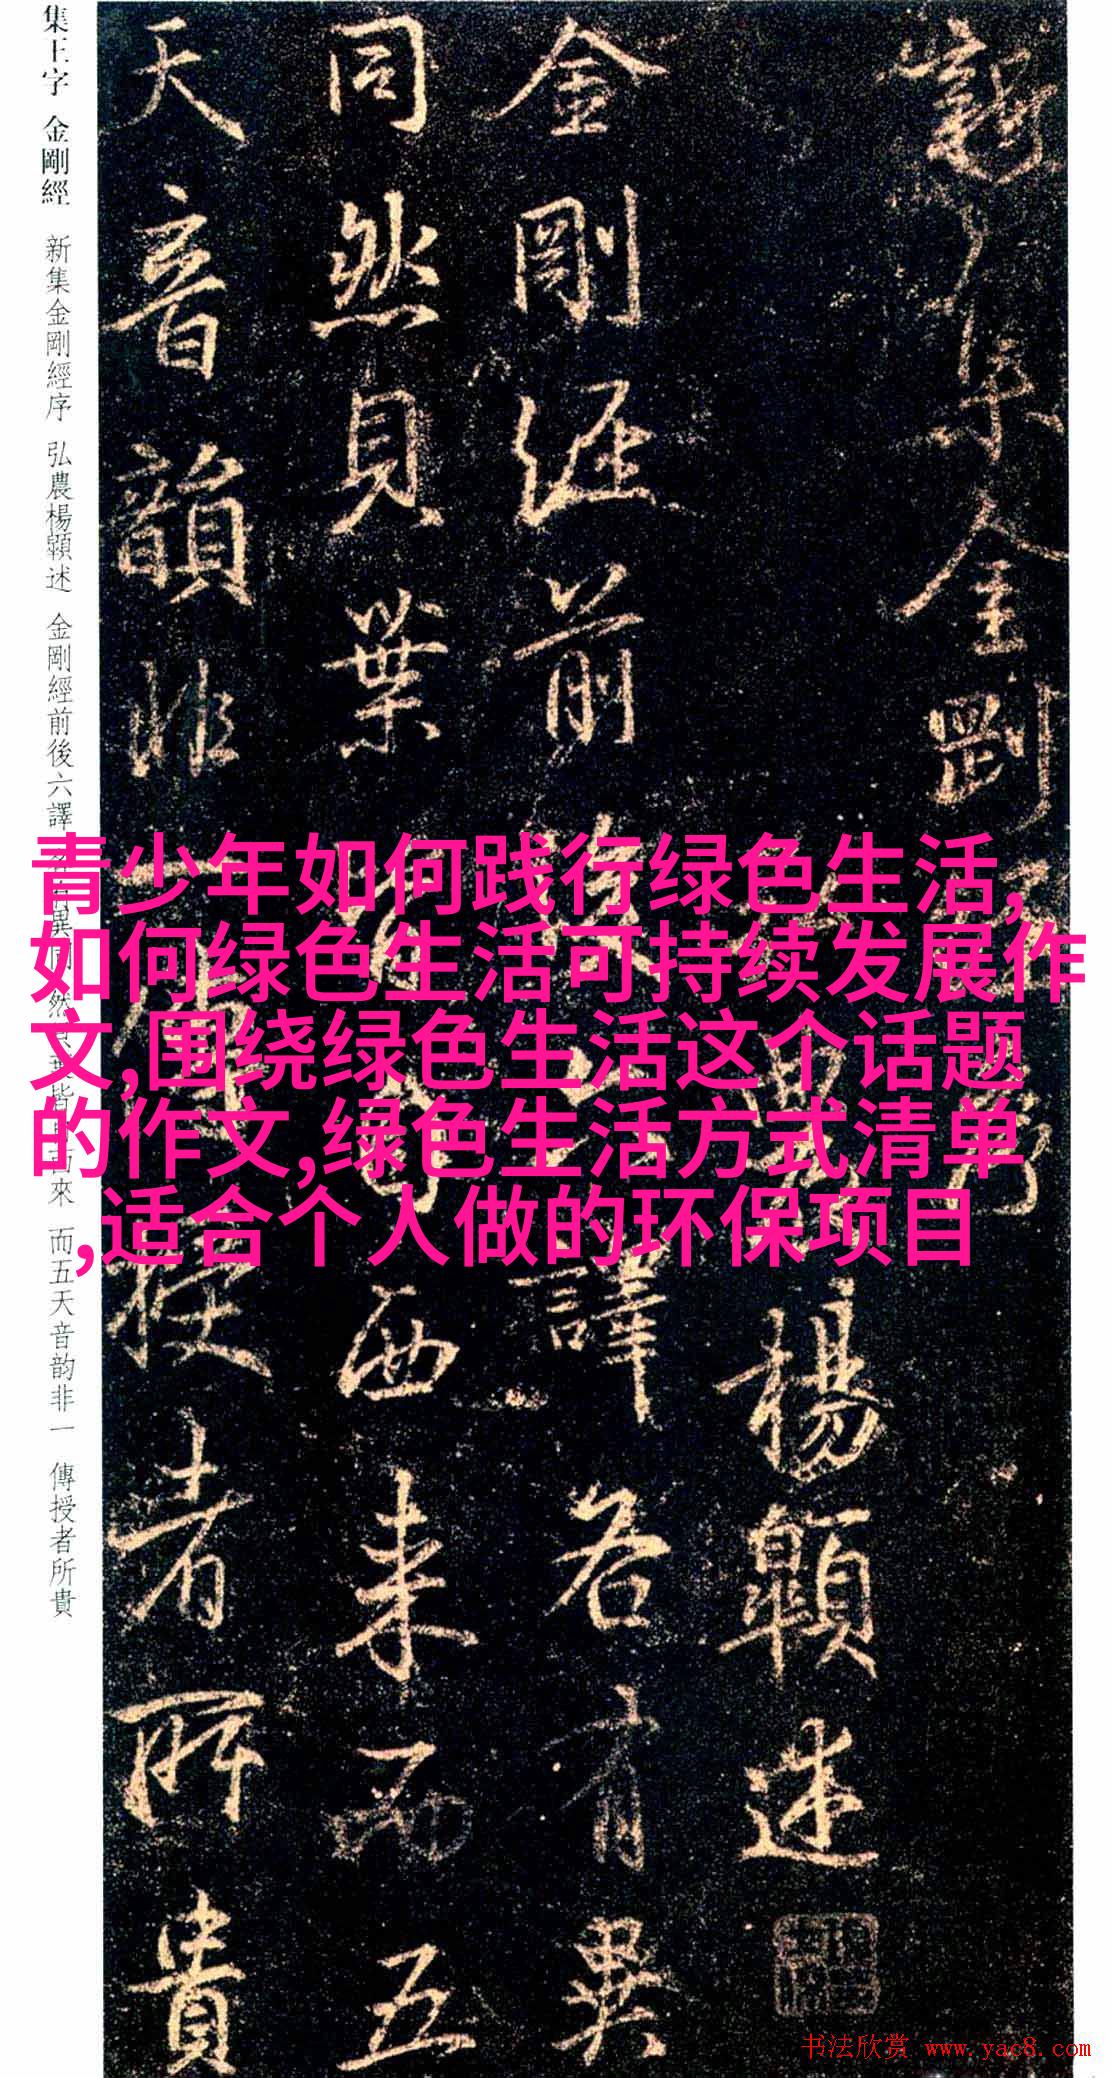 集王字 金剛經 新集金剛經序 弘農楊顗述 金剛經前後六譯 來 而五天音韵非一 傳授者所貴
新集金剛
楊顗述
金剛經前 譯各有異
同然貝葉 西来而五
天音韻非一 授者所貴
青少年如何践行绿色生活,
如何绿色生活可持续发展作
文,围绕绿色生活这个话题
的作文,绿色生活方式清单
,适合个人做的环保项目
书法欣赏 www.yac8.com